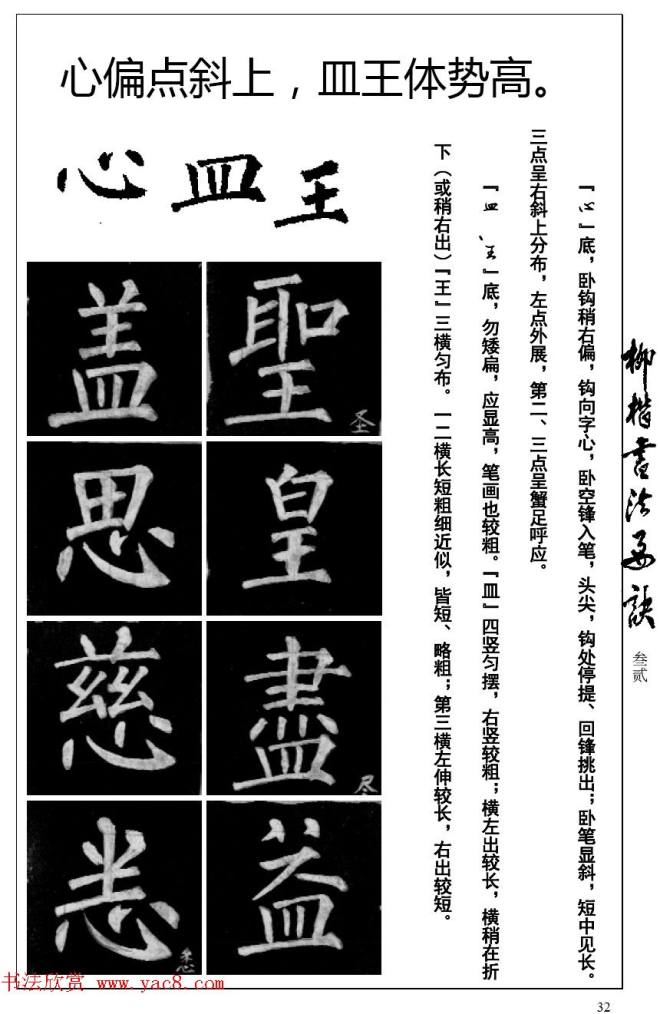 心偏点斜上，皿王体势高。
心皿王
『心』底，卧钩稍右偏，钩向字心，卧空锋入笔，头尖，钩处停提、回锋挑出；卧笔显斜，短中见长。
三点呈右斜上分布，左点外展，第二、三点呈蟹足呼应。
『皿、王』底，勿矮扁，应显高，笔画也较粗。『皿』四竖匀摆，右竖较粗；横左出较长，横稍在折
下（或稍右出）『王』三横匀布。一二横长短粗细近似，皆短、略粗；第三横左伸较长，右出较短。
盖
聖
圣
思
皇
慈
盡
尽
悉
益
柳楷书法要诀
叁贰
书法欣赏 www.yac8.com
32